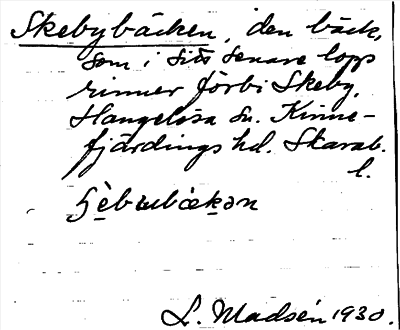 Skebybäcken, den bäck,
som i sitt senare lopp
rinner förbi Skeby,
Hangelösa sn. Kinne-
fjärdings hd. Skarab.
l.
L. Madsén 1930.